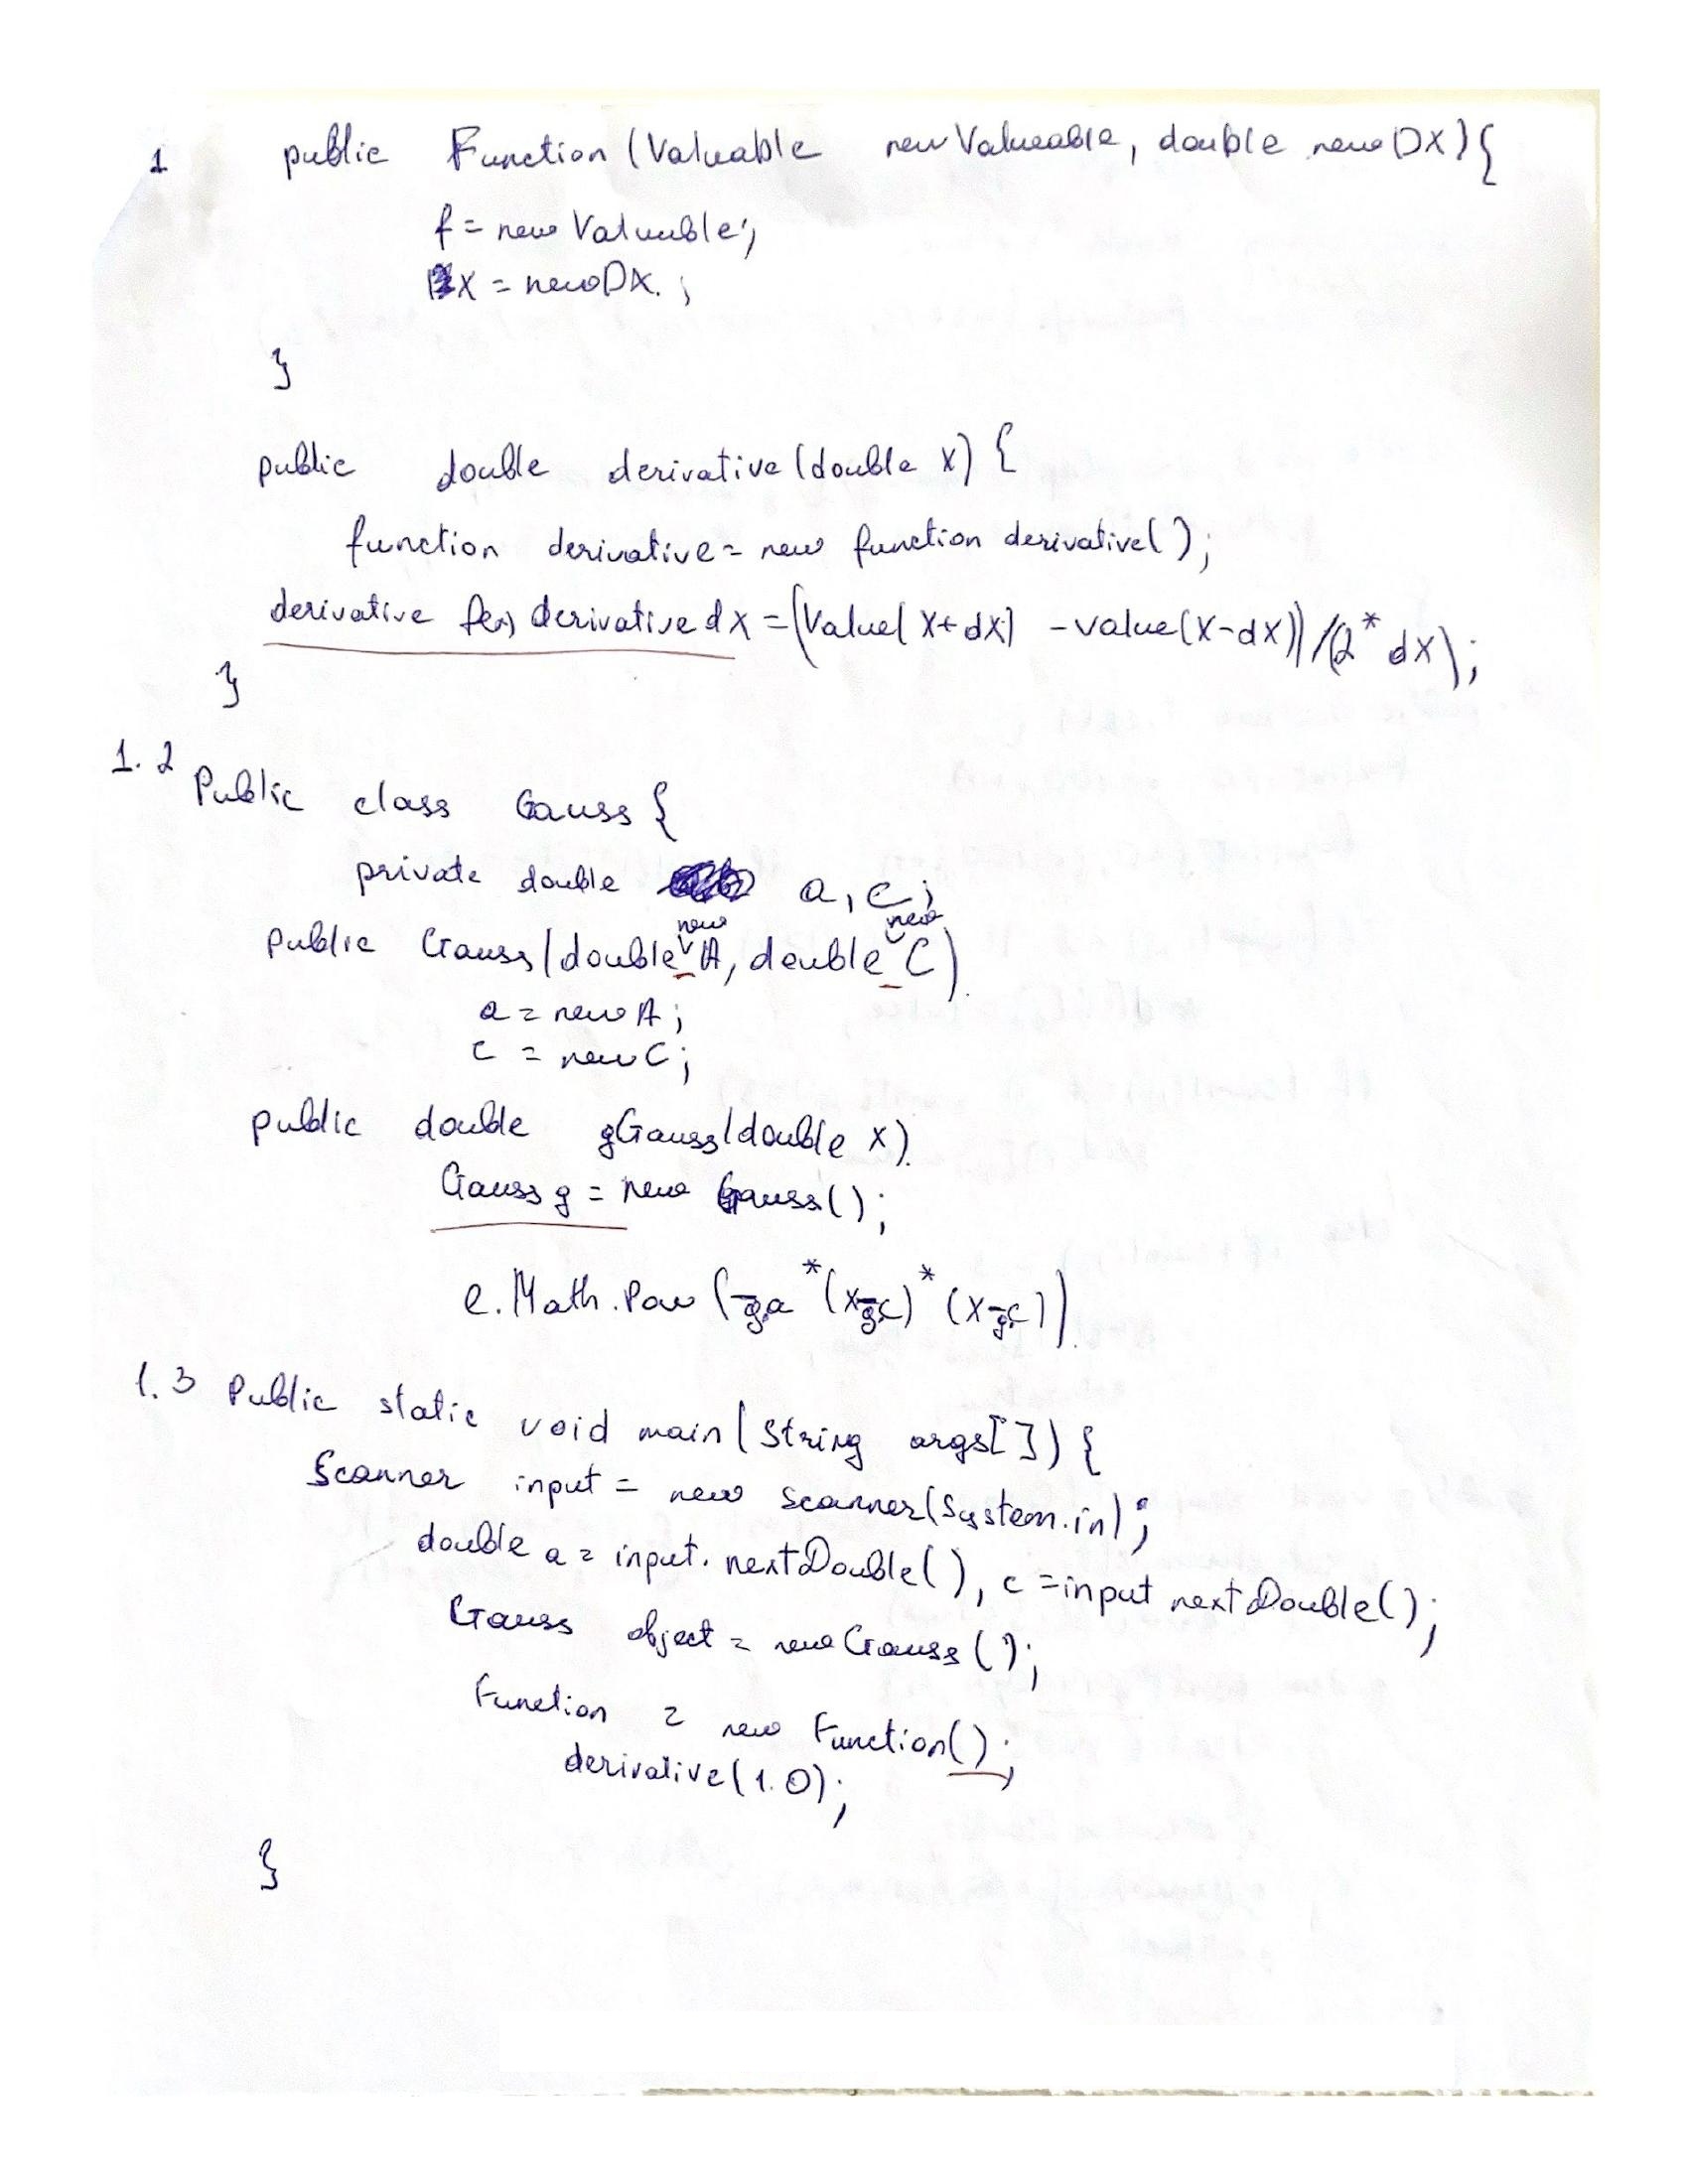 1 public Function (Valuable newValueable, double newDX) {
f = new Valuable;
X = newDX. ;
}
public double derivative (double x) {
function derivative = new function derivative();
derivative f(x) derivative dx = (Value( x+dx) - value(x-dx)) / (2 * dx);
}
1.2 Public class Gauss {
private double a, c;
new new
Public Gauss (double A, double C).
a = new A;
c = new C;
public double gGauss (double x).
Gauss g = new Gauss();
e. Math. Pow (-g.a * (x-g.c) * (x-g.c)).
1.3 Public static void main (String args[]) {
Scanner input = new scanner(System.in);
double a = input. nextDouble(), c = input nextDouble();
Gauss object = new Gauss ();
Function = new Function();
derivative (1.0);
}